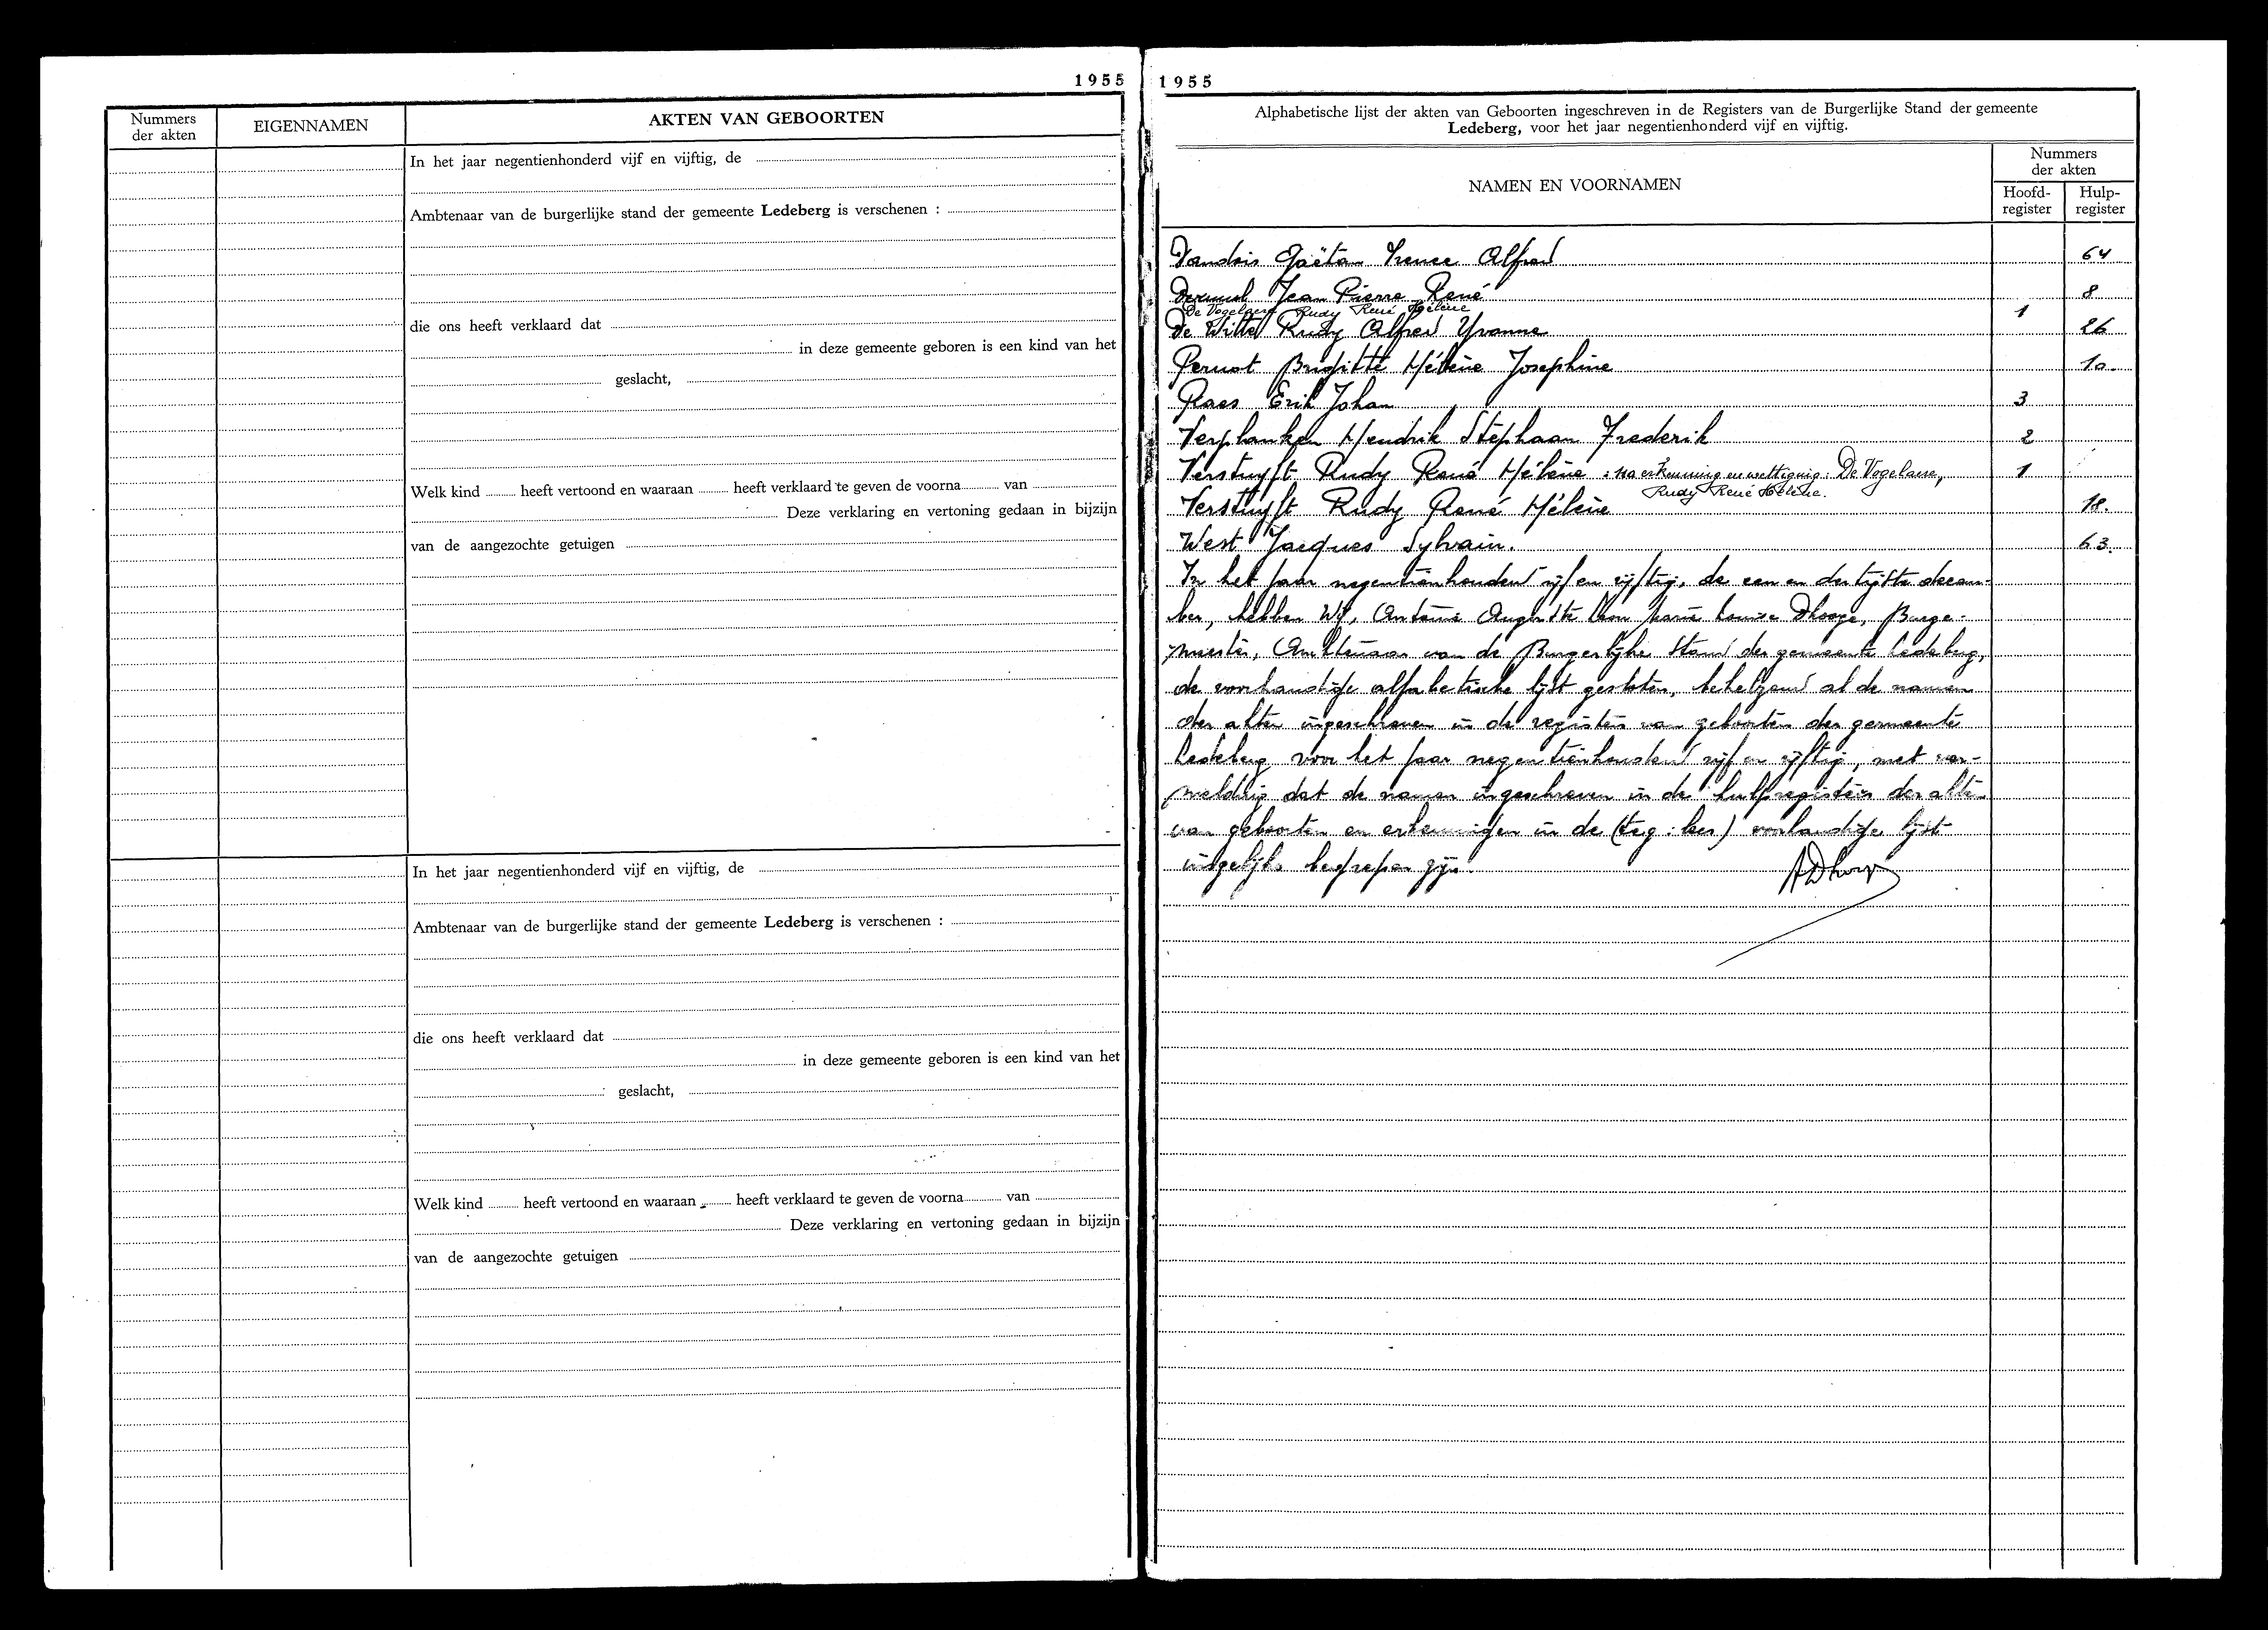 1955
Nummers
der akten
EIGENNAMEN
AKTEN VAN GEBOORTEN
In het jaar negentienhonderd vijf en vijftig, de
Ambtenaar van de burgerlijke stand der gemeente Ledeberg is verschenen :
die ons heeft verklaard dat
in deze gemeente geboren is een kind van het
geslacht,
Welk kind heeft vertoond en waaraan heeft verklaard te geven de voorna van
Deze verklaring en vertoning gedaan in bijzijn
van de aangezochte getuigen
In het jaar negentienhonderd vijf en vijftig, de
Ambtenaar van de burgerlijke stand der gemeente Ledeberg is verschenen :
die ons heeft verklaard dat
in deze gemeente geboren is een kind van het
geslacht,
Welk kind heeft vertoond en waaraan heeft verklaard te geven de voorna van
Deze verklaring en vertoning gedaan in bijzijn
van de aangezochte getuigen
1955
Alphabetische lijst der akten van Geboorten ingeschreven in de Registers van de Burgerlijke Stand der gemeente
Ledeberg, voor het jaar negentienhonderd vijf en vijftig.
NAMEN EN VOORNAMEN
Nummers
der akten
Hoofd-
register
Hulp-
register
Gaëtan Irence Alfred 64
Jean Pierre René 8
De Vogelaere Rudy René Hélène 1
De Witte Rudy Alfred Yvonne 26
Brigitte Hélène Josephine 10.
Raes Erik Johan 3
Verplanken Hendrik Stephaan Frederik 2
Verstuyft Rudy René Hélène : na erkenning en wettiging : De Vogelaere, 1
Rudy René Hélène.
Verstuyft Rudy René Hélène 18.
West Jacques Sylvain. 63.
In het jaar negentienhonderd vijf en vijftig, de een en dertigste decem-
ber, hebben Wij, Antoine Auguste Leon Marie Louise Dhooge, Burge-
meester, Ambtenaar van de Burgerlijke Stand der gemeente Ledeberg,
de voorhandige alfabetische lijst gesloten, behelzend al de namen
der akten ingeschreven in de registers van geboorten der gemeente
Ledeberg voor het jaar negentienhonderd vijf en vijftig, met ver-
melding dat de namen ingeschreven in de hulpregisters der akten
van geboorten en erkenningen in de voorhandige lijst
insgelijks begrepen zijn.
ADhooge